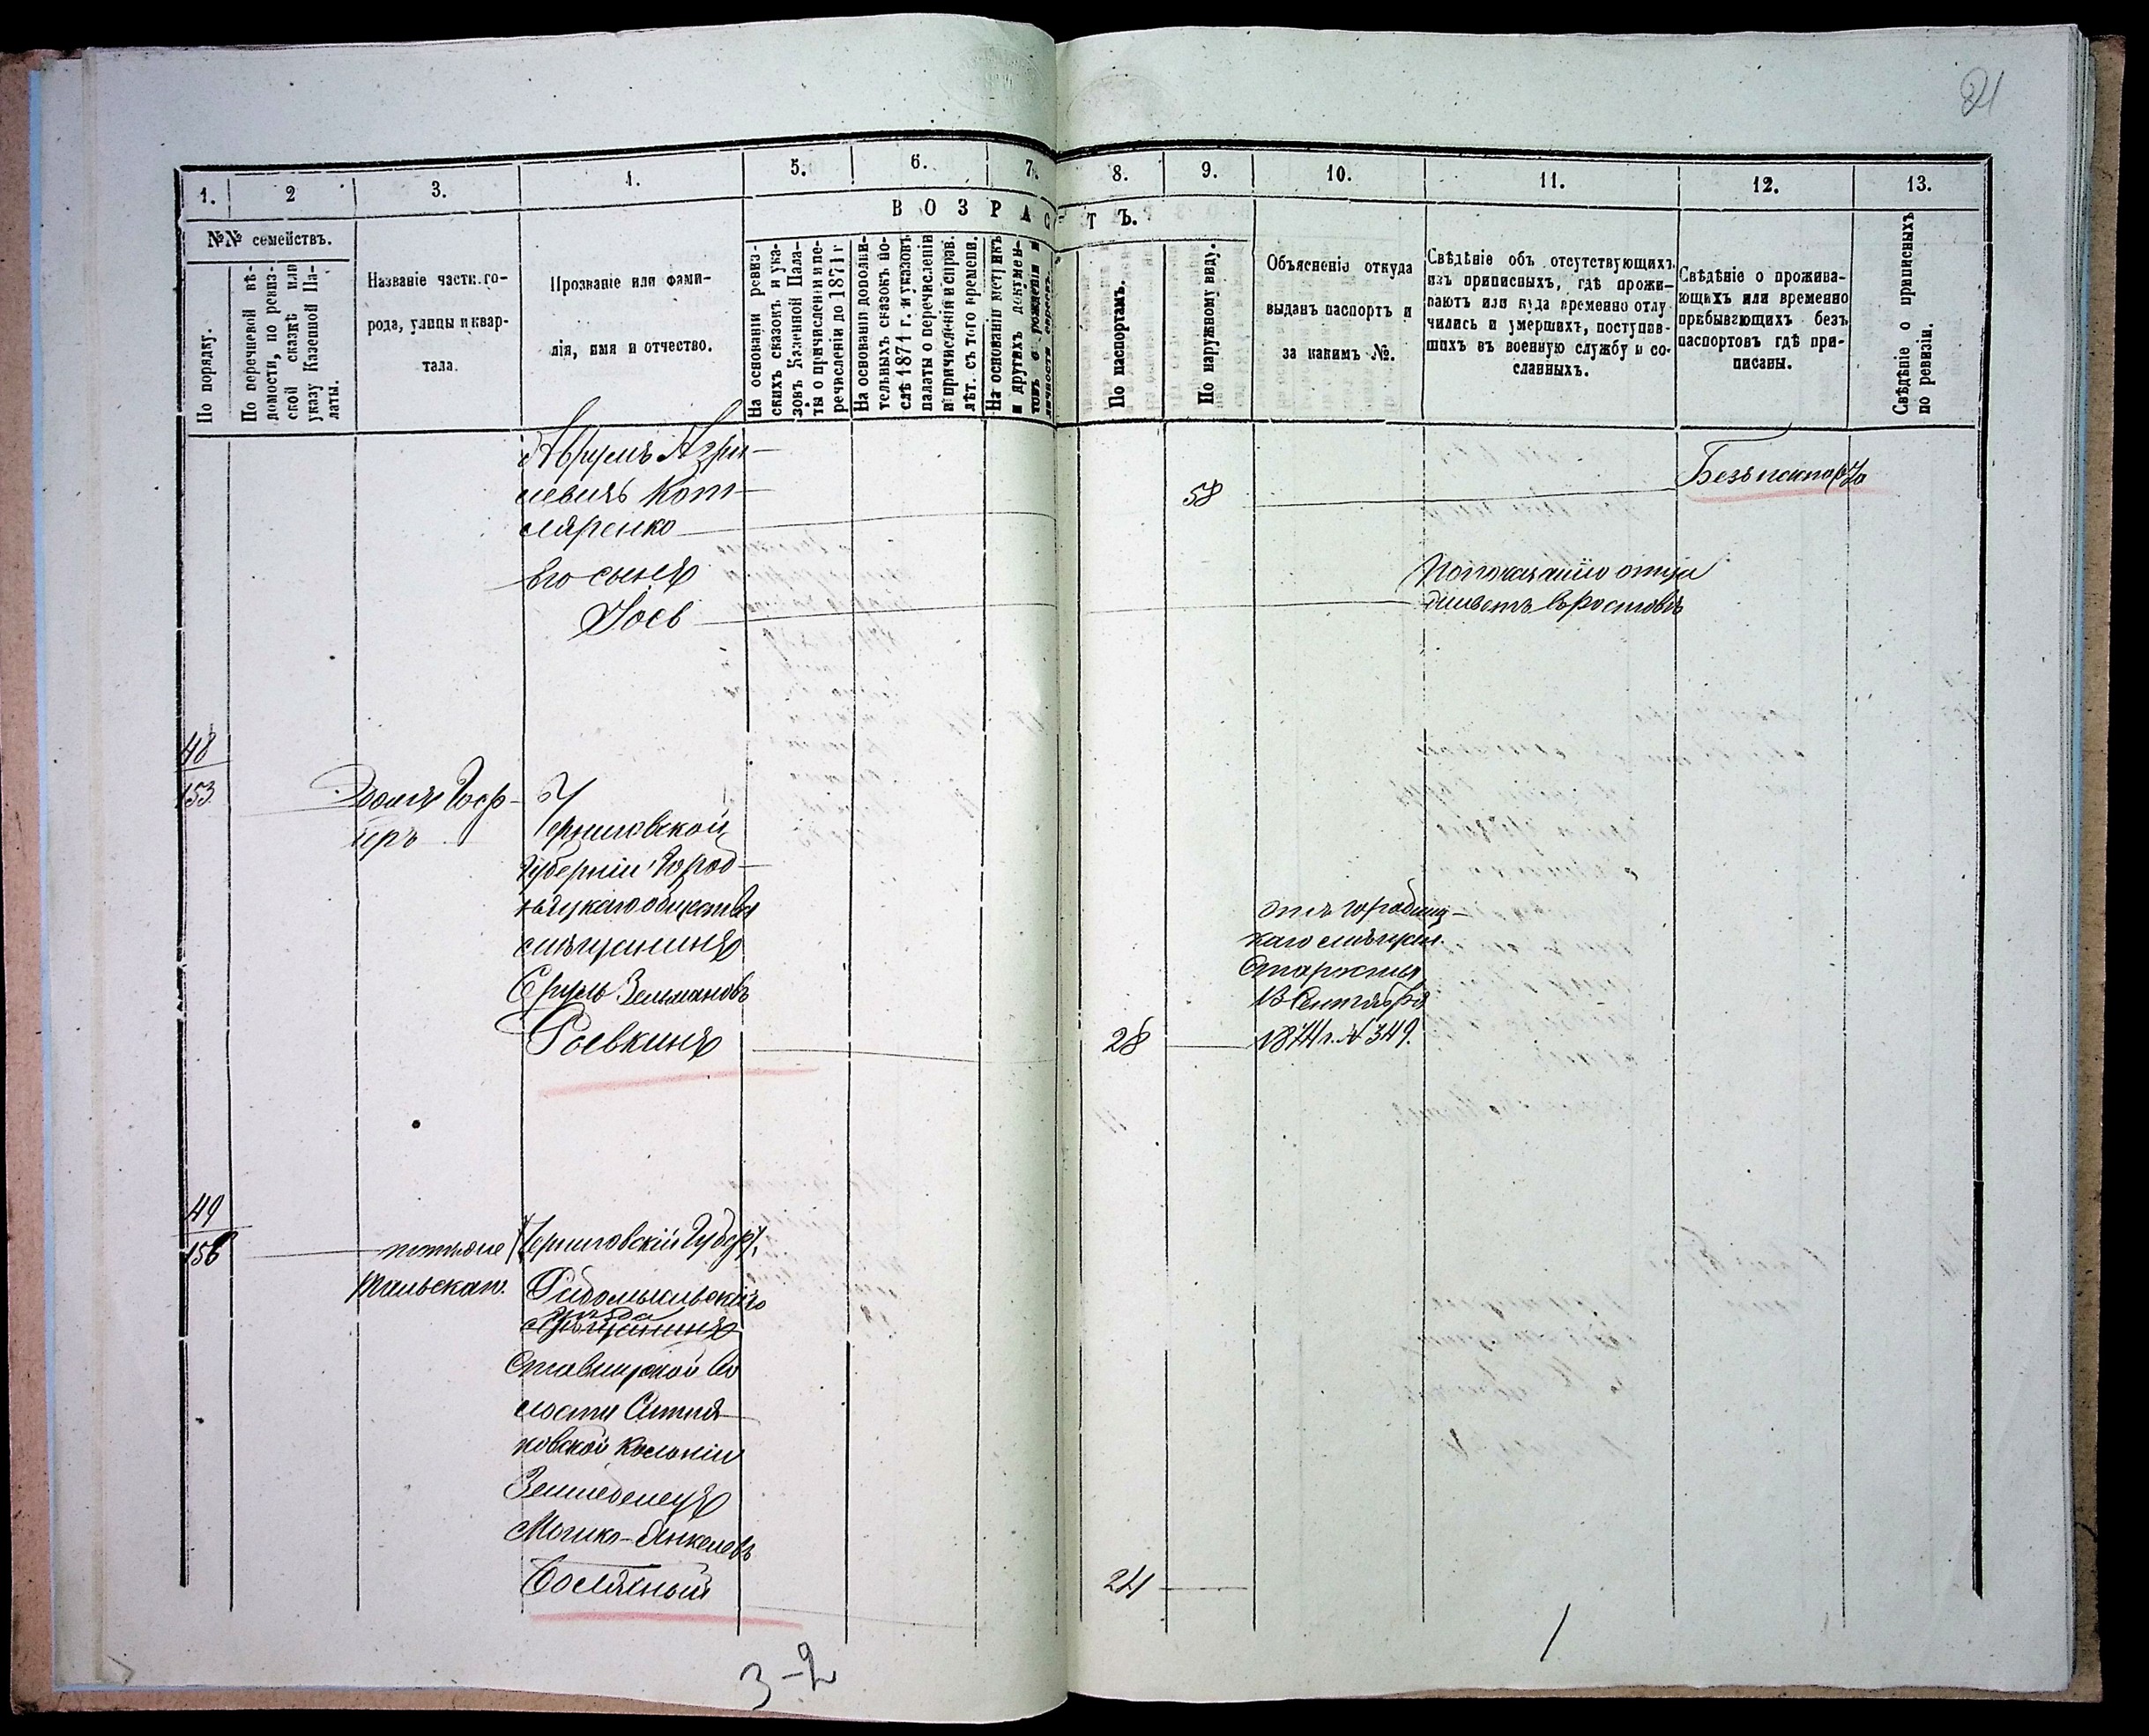 21
1.
2
3.
4.
5.
6.
7.
8.
9.
10.
11.
12.
13.
В О З Р А С Т Ъ.
№№ семействъ.
По порядку.
По перечневой вѣ-
домости, по ревиз-
ской сказкѣ или
указу Казенной Па-
латы.
Названіе части го-
рода, улицы и квар-
тала.
Прозваніе или фами-
лія, имя и отчество.
На основаніи ревиз-
скихъ сказокъ и ука-
зовъ Казенной Пала-
ты о причисленіи и пе-
речисленіи до 1871 г
На основаніи дополни-
тельныхъ сказокъ по-
слѣ 1871 г. и указовъ
палаты о перечисленіи
и причисленіи и справ.
лѣт. съ того времени.
На основаніи метрикъ
и другихъ докумен-
товъ о рожденіи и
личности евреевъ.
По паспортамъ.
По наружному виду.
Объясненіе откуда
выданъ паспортъ и
за какимъ №.
Свѣдѣніе объ отсутствующихъ
изъ приписныхъ, гдѣ прожи-
ваютъ или куда временно отлу-
чились и умершихъ, поступив-
шихъ въ военную службу и со-
сланныхъ.
Свѣдѣніе о прожива-
ющихъ или временно
пребывающихъ безъ
паспортовъ гдѣ при-
писаны.
Свѣдѣніе о приписныхъ
по ревизіи.
Аврумъ Азри-
левичъ Кот-
ляренко
58
Безъ паспорта
Его сынъ
Іось
По показанію отца
живетъ въ Ростовѣ
48
153
Домъ
Черниговской
Губерніи Город-
ницкаго общества
мѣщанинъ
Сруль Зельмановъ
Роевкинъ
28
отъ Городниц-
каго мѣщан.
Старосты
13 Сентября
1874 г. № 349.
49
156
Черниговскій Губер.
Радомысльскаго
уѣзда
мѣщанинъ
Ставищской Во
лости Ситня-
ковской Колоніи
Земледелецъ
Мошко-Янкелевъ
24
3-2
1